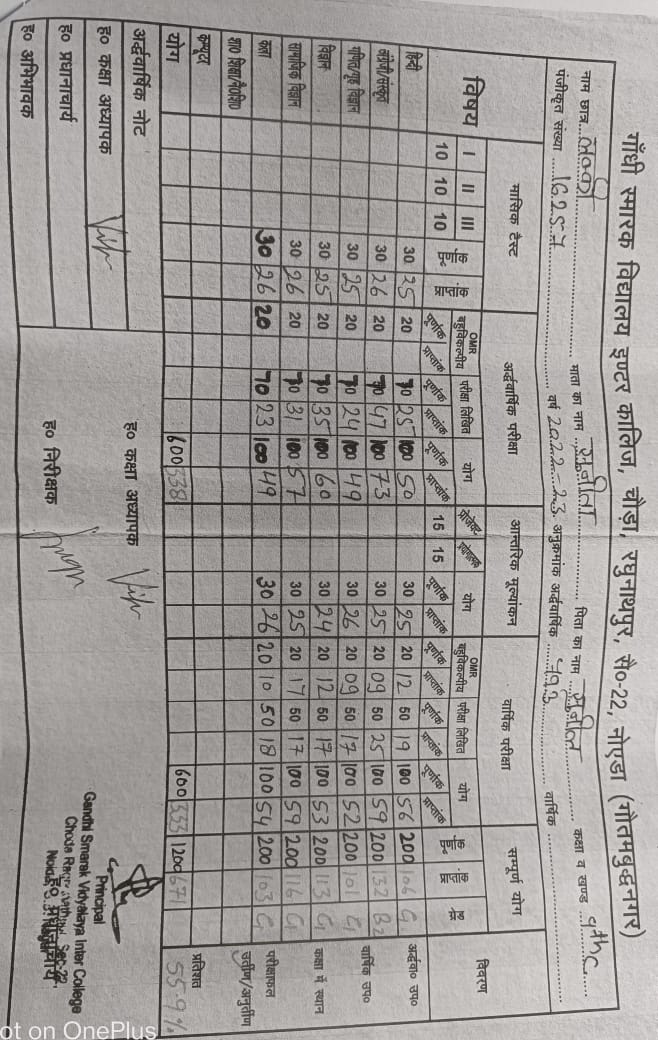 गाँधी स्मारक विद्यालय इण्टर कालिज, चौड़ा, रघुनाथपुर, सै०-22, नोएडा (गौतमबुद्धनगर)
नाम छात्र माता का नाम सुनीता पिता का नाम सुनील कक्षा व खण्ड 9th C
पंजीकृत संख्या 16257 वर्ष 2022-23 अनुक्रमांक अर्द्धवार्षिक 493 वार्षिक
विषय मासिक टैस्ट अर्द्धवार्षिक परीक्षा आन्तरिक मूल्यांकन वार्षिक परीक्षा सम्पूर्ण योग विवरण
I II III पूर्णांक प्राप्तांक OMR बहुविकल्पीय परीक्षा लिखित योग प्रोजेक्ट योग OMR बहुविकल्पीय परीक्षा लिखित योग पूर्णांक प्राप्तांक ग्रेड
10 10 10 पूर्णांक प्राप्तांक पूर्णांक प्राप्तांक पूर्णांक प्राप्तांक 15 15 पूर्णांक प्राप्तांक पूर्णांक प्राप्तांक पूर्णांक प्राप्तांक पूर्णांक प्राप्तांक
हिन्दी 30 25 20 70 25 100 50 30 25 20 12 50 19 100 56 200 106 C1 अर्द्धवा० उप०
अंग्रेजी/संस्कृत 30 26 20 70 47 100 73 30 25 20 09 50 25 100 59 200 132 B2
गणित/गृह विज्ञान 30 25 20 70 24 100 49 30 26 20 09 50 17 100 52 200 101 C1 वार्षिक उप०
विज्ञान 30 25 20 70 35 100 60 30 24 20 12 50 17 100 53 200 113 C1 कक्षा में स्थान
सामाजिक विज्ञान 30 26 20 70 31 100 57 30 25 20 17 50 17 100 59 200 116 C1
कला 30 26 20 70 23 100 49 30 26 20 10 50 18 100 54 200 103 C1 परीक्षाफल
शा० शिक्षा/नै०शि० उत्तीर्ण/अनुत्तीर्ण
कम्प्यूटर
योग 600 338 600 333 1200 671 प्रतिशत 55.9%
अर्द्धवार्षिक नोट
ह० कक्षा अध्यापक
ह० प्रधानाचार्य
ह० अभिभावक
ह० कक्षा अध्यापक
ह० निरीक्षक
ह० प्रधानाचार्य
Principal
Gandhi Smarak Vidyalaya Inter College
Sec-22
ot on OnePlus